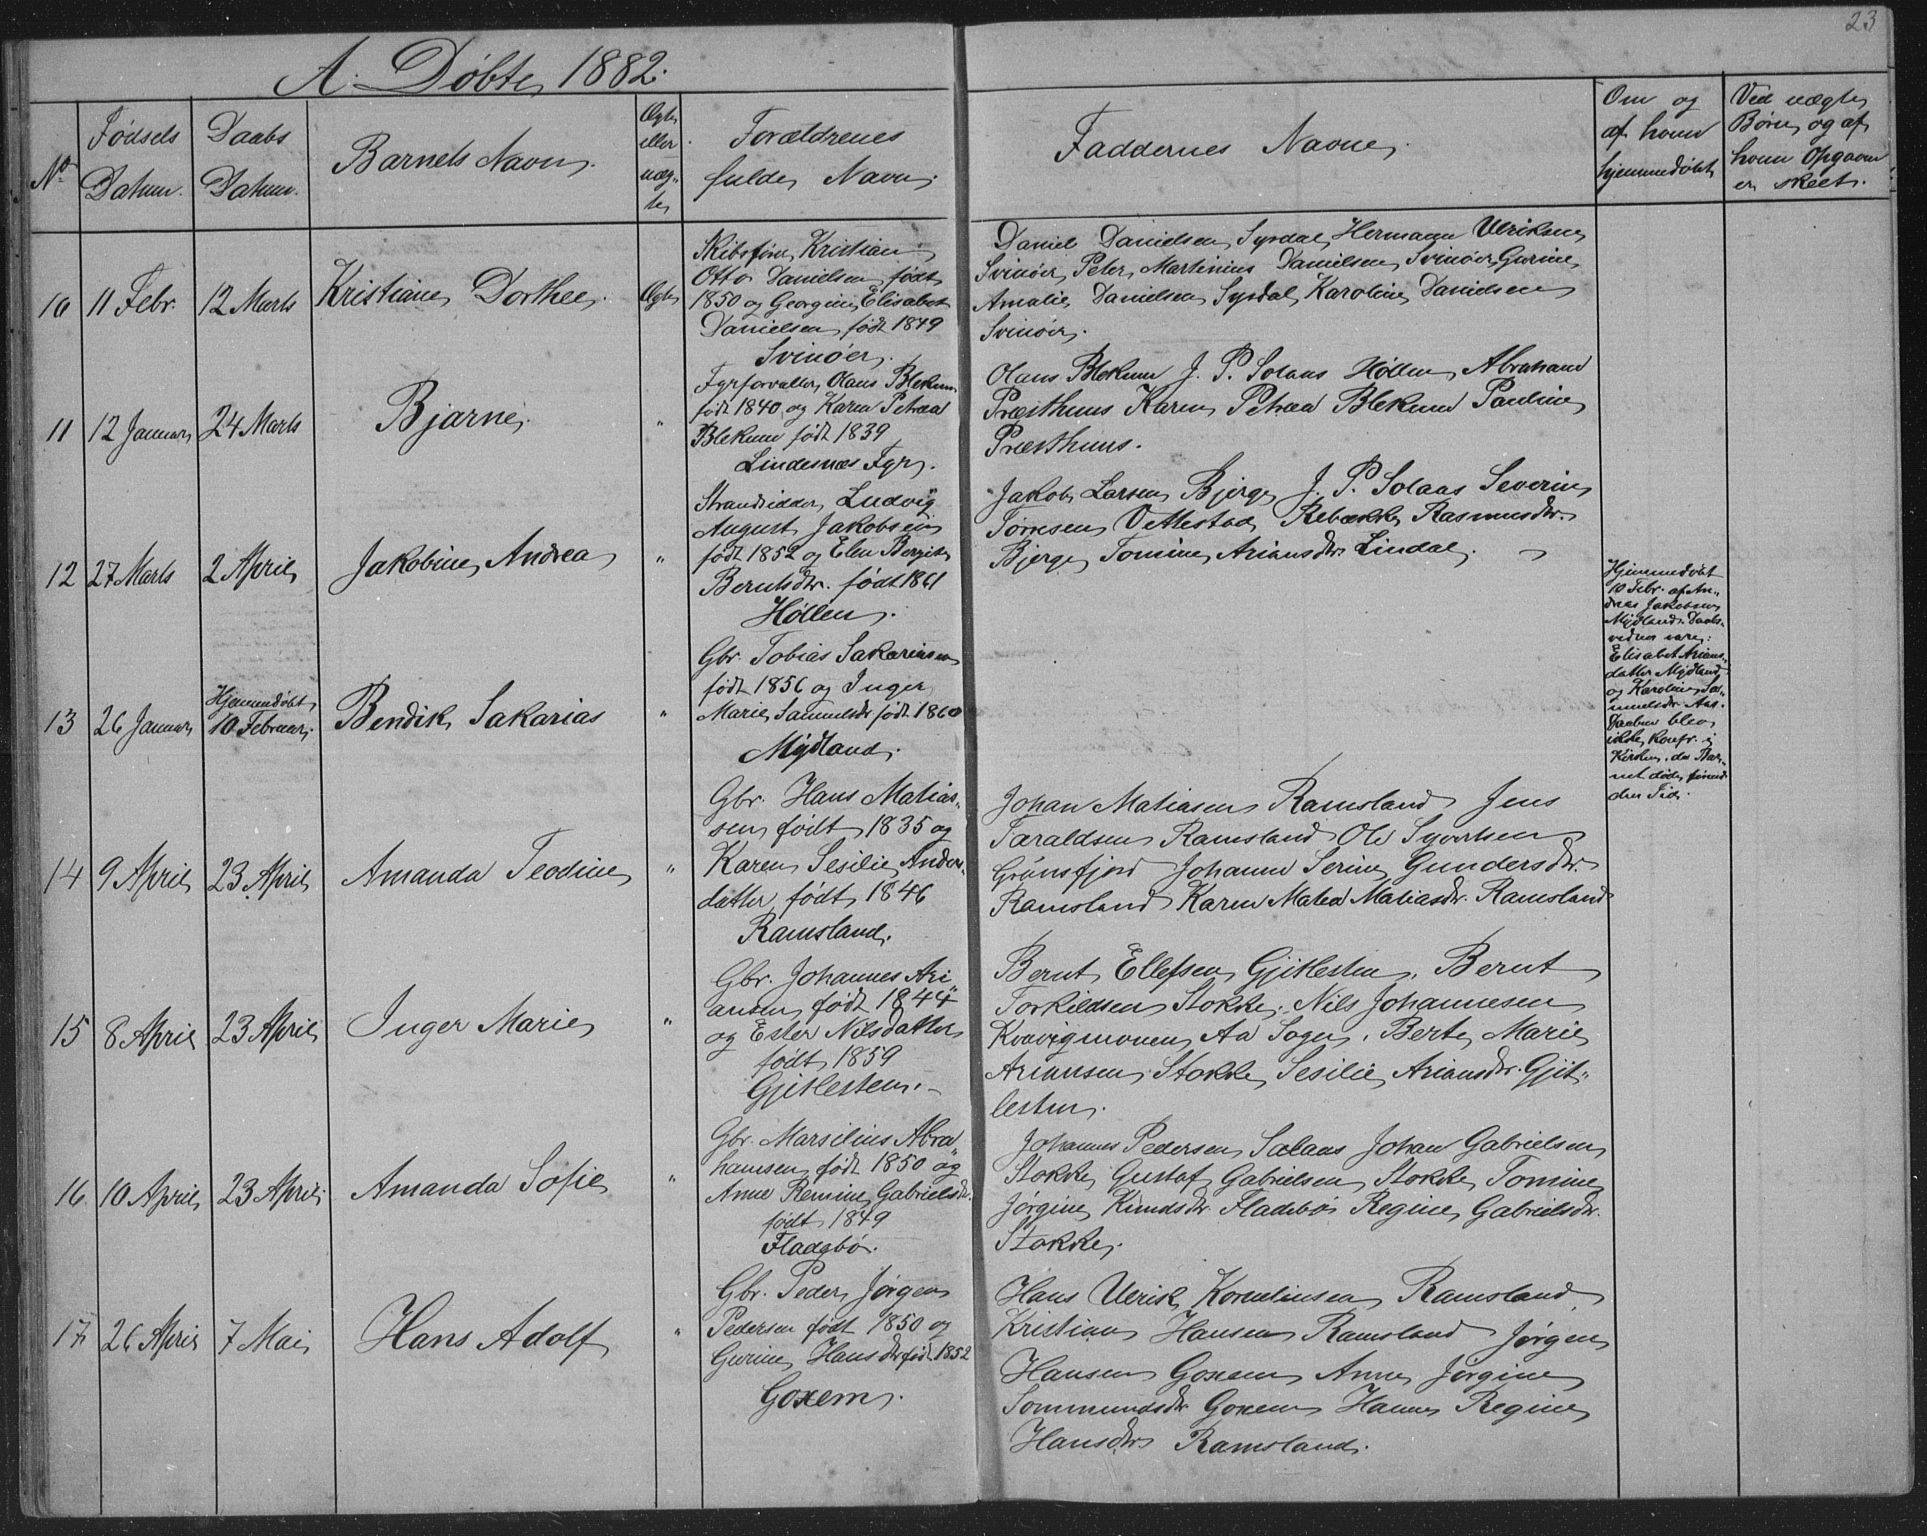 23
A. Døbte 1882.
No
Fødsels
Datum.
Daabs
Datum.
Barnets Navn.
Ægte
eller
uæg-
te
Forældrenes
fulde Navn.
Faddernes Navne.
Om og
af hvem
hjemmedøbt
Ved uægte
Børn, og af
hvem Opgaven
er skeet.
10 11 Febr. 12 Marts Kristiane Dorthee. Ægte
Skibsfører Kristian
Otto Danielsen født
1850 og Georgine Elisabet
Danielsen født 1849
Svinøer.
Daniel Danielsen Syrdal, Hermann Ulriksen
Svinøer, Peter Martinius Danielsen, Svinøer, Gurine
Amalie Danielsen Syrdal, Karoline Danielsen
Svinøer.
11 12 Januar 24 Marts Bjarne. "
Fyrforvalter Olaus Blekum
født 1840, og Karen Petrea
Blekum født 1839
Lindesnæs Fyr.
Olaus Blekum J. P. Solaas Høllen, Abraham
Præsthuus Karen Petrea Blekum Pauline
Præsthuus.
12 27 Marts 2 April Jakobine Andrea "
Strandsidder Ludvig
August Jakobsen
født 1852 og Elen Bergite
Berntsdtr. født 1861
Høllen.
Jakob Larsen Bjerge J. P. Solaas Severin
Tørresen Vettestad, Rebække Rasmusdtr.
Bjerge Tomine Ariansdtr. Lindal.
13 26 Januar Hjemmedøbt
10 Februar. Bendik Sakarias "
Gbr. Tobias Sakariasen
født 1856 og Inger
Marie Samuelsdr født 1860
Mydland.
Hjemmedøbt
10 Febr. af An-
dreas Jakobsen
Mydland. Daabs-
vidner vare:
Elisabet Arians-
datter Mydland
og Karoline Sa-
muelsdr. Aas.
Daaben blev
ikke konfr. i
Kirken, da Bar-
net døde førend
den Tid.
14 9 April 23 April Amanda Teodine "
Gbr. Hans Matias-
sen født 1835 og
Karen Sesilie Anders-
datter født 1846
Ramsland.
Johan Matiasen Ramsland Jens
Taraldsen Ramsland Ole Syvertsen
Grønsfjord Johanne Serine Gundersdtr.
Ramsland Karen Matea Matiasdtr. Ramsland
15 8 April 23 April Inger Marie "
Gbr. Johannes Ari-
ansen født 1844
og Ester Nilsdatter
født 1859
Gjitlesten.
Bernt Ellefsen Gjitlesten, Bernt
Torkildsen Stokke, Nils Johannesen
Kvavigmonen, Aa Sogn. Berte Marie
Ariansen Stokke Sesilie Ariansdtr. Gjit-
lesten.
16 10 April 23 April. Amanda Sofie "
Gbr. Marsilius Abra-
hamsen født 1850 og
Anne Remine Gabrielsdtr.
født 1849
Fladebø.
Johannes Pedersen Salaas Johan Gabrielsen
Stokke, Gustaf Gabrielsen Stokke Tomine
Jørgine Knudsdtr Fladebø Regine Gabrielsdtr.
Stokke.
17 26 April 7 Mai Hans Adolf "
Gbr. Peder Jørgen
Pedersen født 1850 og
Gurine Hansdtr født 1852
Goxem.
Hans Ulrik Korneliusen Ramsland,
Kristian Hansen Ramsland Jørgen
Hansen Goxem Anne Jørgine
Tommundsdtr Goxem Hanne Regine
Hansdtr Ramsland.